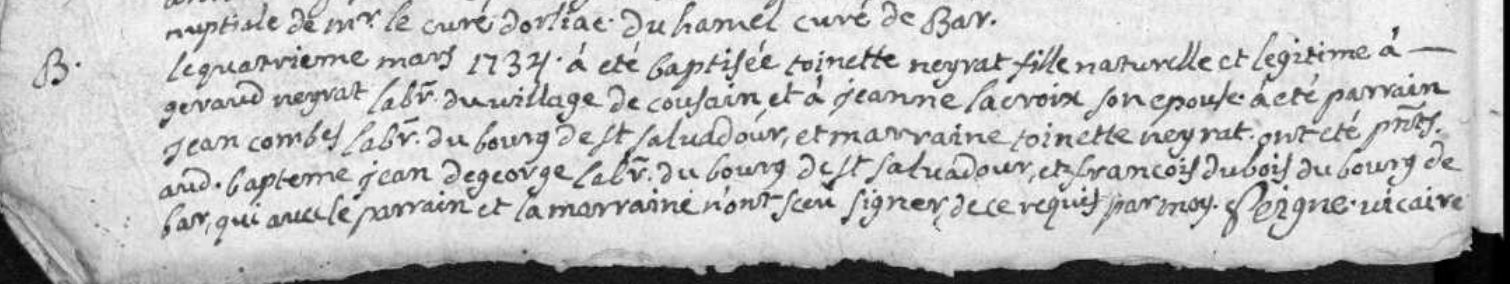 nuptiale de mr. le curé dorliac. duhamel curé de Bar.
B. le quatrieme mars 1734. á eté baptisée toinette neyrat fille naturelle et legitime á —
geraud neyrat labr. du village de cousain et á jeanne lacroix son epouse. á eté parrain
jean combes labr. du bourg de st salvadour, et marraine toinette neyrat. ont eté pnts.
aud. bapteme jean degeorge labr. du bourg de st salvadour, et francois dubois du bourg de
bar, qui avec le parrain et la marraine n'ont sceu signer, de ce requis par moy. Peigne. vicaire